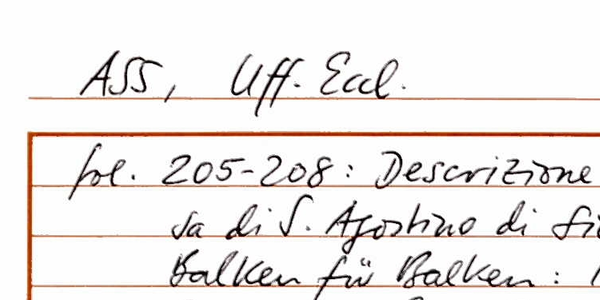 ASS, Uff. Eccl.
fol. 205-208: Descrizione
sa di S. Agostino di
Balken für Balken: